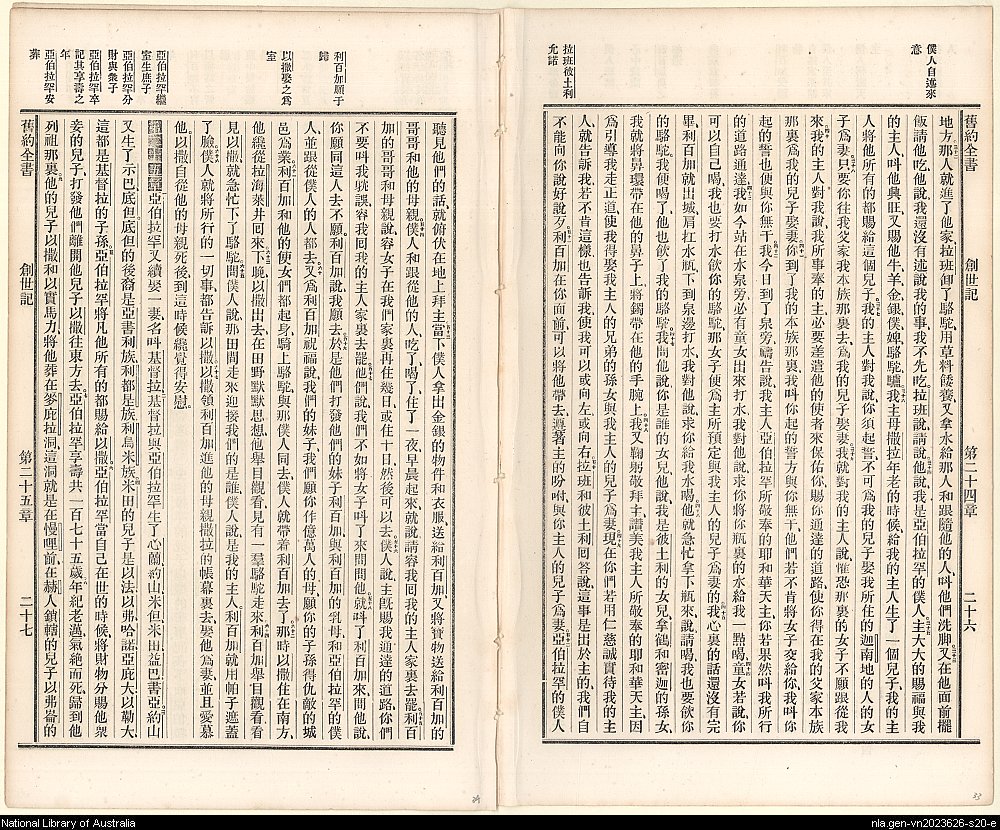 僕人自述來
意
拉班彼土利
允諾
舊約全書 創世記 第二十四章 二十六
地方那人就進了他家拉班卸了駱駝用草料餧養又拿水給那人和跟隨他的人叫他們洗脚又在他面前擺
飯請他吃他說我還沒有述說我的事我不先吃拉班說請說他說我是亞伯拉罕的僕人主大大的賜福與我
的主人叫他興旺又賜他牛羊金銀僕婢駱駝驢我主母撒拉年老的時候給我的主人生了一個兒子我的主
人將他所有的都賜給這個兒子我的主人對我說你須起誓不可爲我的兒子娶我所住的迦南地的人的女
子爲妻只要你往我父家我本族那裏去爲我的兒子娶妻我就對我的主人說惟恐那裏的女子不願跟從我
來我的主人對我說我所事奉的主必要差遣他的使者來保佑你賜你通達的道路使你得在我的父家本族
那裏爲我的兒子娶妻你到了我的本族那裏我叫你起的誓方與你無干他們若不肯將女子交給你我叫你
起的誓也便與你無干我今日到了泉旁禱告說我主人亞伯拉罕所敬奉的耶和華天主你若果然叫我所行
的道路通達我如今站在水泉旁必有童女出來打水我對他說求你將你瓶裏的水給我一點喝童女若說你
可以自己喝我也要打水飲你的駱駝那女子便爲主所預定與我主人的兒子爲妻的我心裏的話還沒有完
畢利百加就出城肩扛水瓶下到泉邊打水我對他說求你給我水喝他就急忙拿下瓶來說請喝我也要飲你
的駱駝我便喝了他也飲了我的駱駝我問他說你是誰的女兒他說我是彼土利的女兒拿鶴和密迦的孫女
我就將鼻環帶在他的鼻子上將鐲帶在他的手腕上我又鞠躬敬拜主讚美我主人所敬奉的耶和華天主因
爲引導我走正道使我得娶我主人的兄弟的孫女與我主人的兒子爲妻現在你們若用仁慈誠實待我的主
人就告訴我若不肯這樣也告訴我使我可以或向左或向右拉班和彼土利回答說這事是出於主的我們自
不能向你說好說歹利百加在你面前可以將他帶去遵著主的吩咐與你主人的兒子爲妻亞伯拉罕的僕人
利百加願于
歸
以撒娶之爲
室
亞伯拉罕繼
室生庶子
亞伯拉罕分
財與衆子
亞伯拉罕卒
記其享壽之
年
亞伯拉罕安
葬
聽見他們的話就俯伏在地上拜主當下僕人拿出金銀的物件和衣服送給利百加又將寶物送給利百加的
哥哥和他的母親僕人和跟從他的人吃了喝了住了一夜晨起來就說請容我回我的主人家裏去罷利百
加的哥哥和母親說容女子在我們家裏再住幾日或住十日然後可以去僕人說主旣賜我通達的道路你們
不要叫我躭誤容我回我的主人家裏去罷他們說我們不如將女子叫了來問問他就叫了利百加來問他說
你願同這人去不願利百加說我願去於是他們打發他們的妹子利百加與利百加的乳母和亞伯拉罕的僕
人並跟從僕人的人都去又爲利百加祝福說我們的妹子我們願你作億萬人的母願你的子孫得仇敵的城
邑爲業利百加和他的使女們都起身騎上駱駝與那僕人同去僕人就帶着利百加去了那時以撒住在南方
他纔從拉海萊井回來下晚以撒出去在田野默默思想他舉目觀看見有一羣駱駝走來利百加舉目觀看看
見以撒就急忙下了駱駝問僕人說那田間走來迎接我們的是誰僕人說是我的主人利百加就用帕子遮蓋
了臉僕人就將所行的一切事都告訴以撒以撒領利百加進他的母親撒拉的帳幕裏去娶他爲妻並且愛慕
他以撒自從他的母親死後到這時候纔覺得安慰
亞伯拉罕又續娶一妻名叫基督拉基督拉與亞伯拉罕生了心蘭約山米但米甸益巴書亞約山
又生了示巴底但底但的後裔是亞書利族利都是族利烏米族米甸的兒子是以法以弗哈諾亞庇大以勒大
這都是基督拉的子孫亞伯拉罕將凡他所有的都賜給以撒亞伯拉罕當自己在世的時候將財物分賜他衆
妾的兒子打發他們離開他兒子以撒往東方去亞伯拉罕享壽共一百七十五歲年紀老邁氣絕而死歸到他
列祖那裏他的兒子以撒和以實馬力將他葬在麥庇拉洞這洞就是在慢哩前在赫人鎖轄的兒子以弗崙的
舊約全書 創世記 第二十五章 二十七
National Library of Australia
nla.gen-vn2023626-s20-e